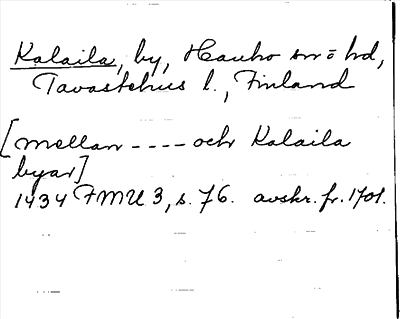 Kalaila, by, Hauho sn o hd,
Tavastehus l., Finland
[mellan ---- och Kalaila
byar]
1434 FMU 3, s. 76. avskr. fr. 1701.